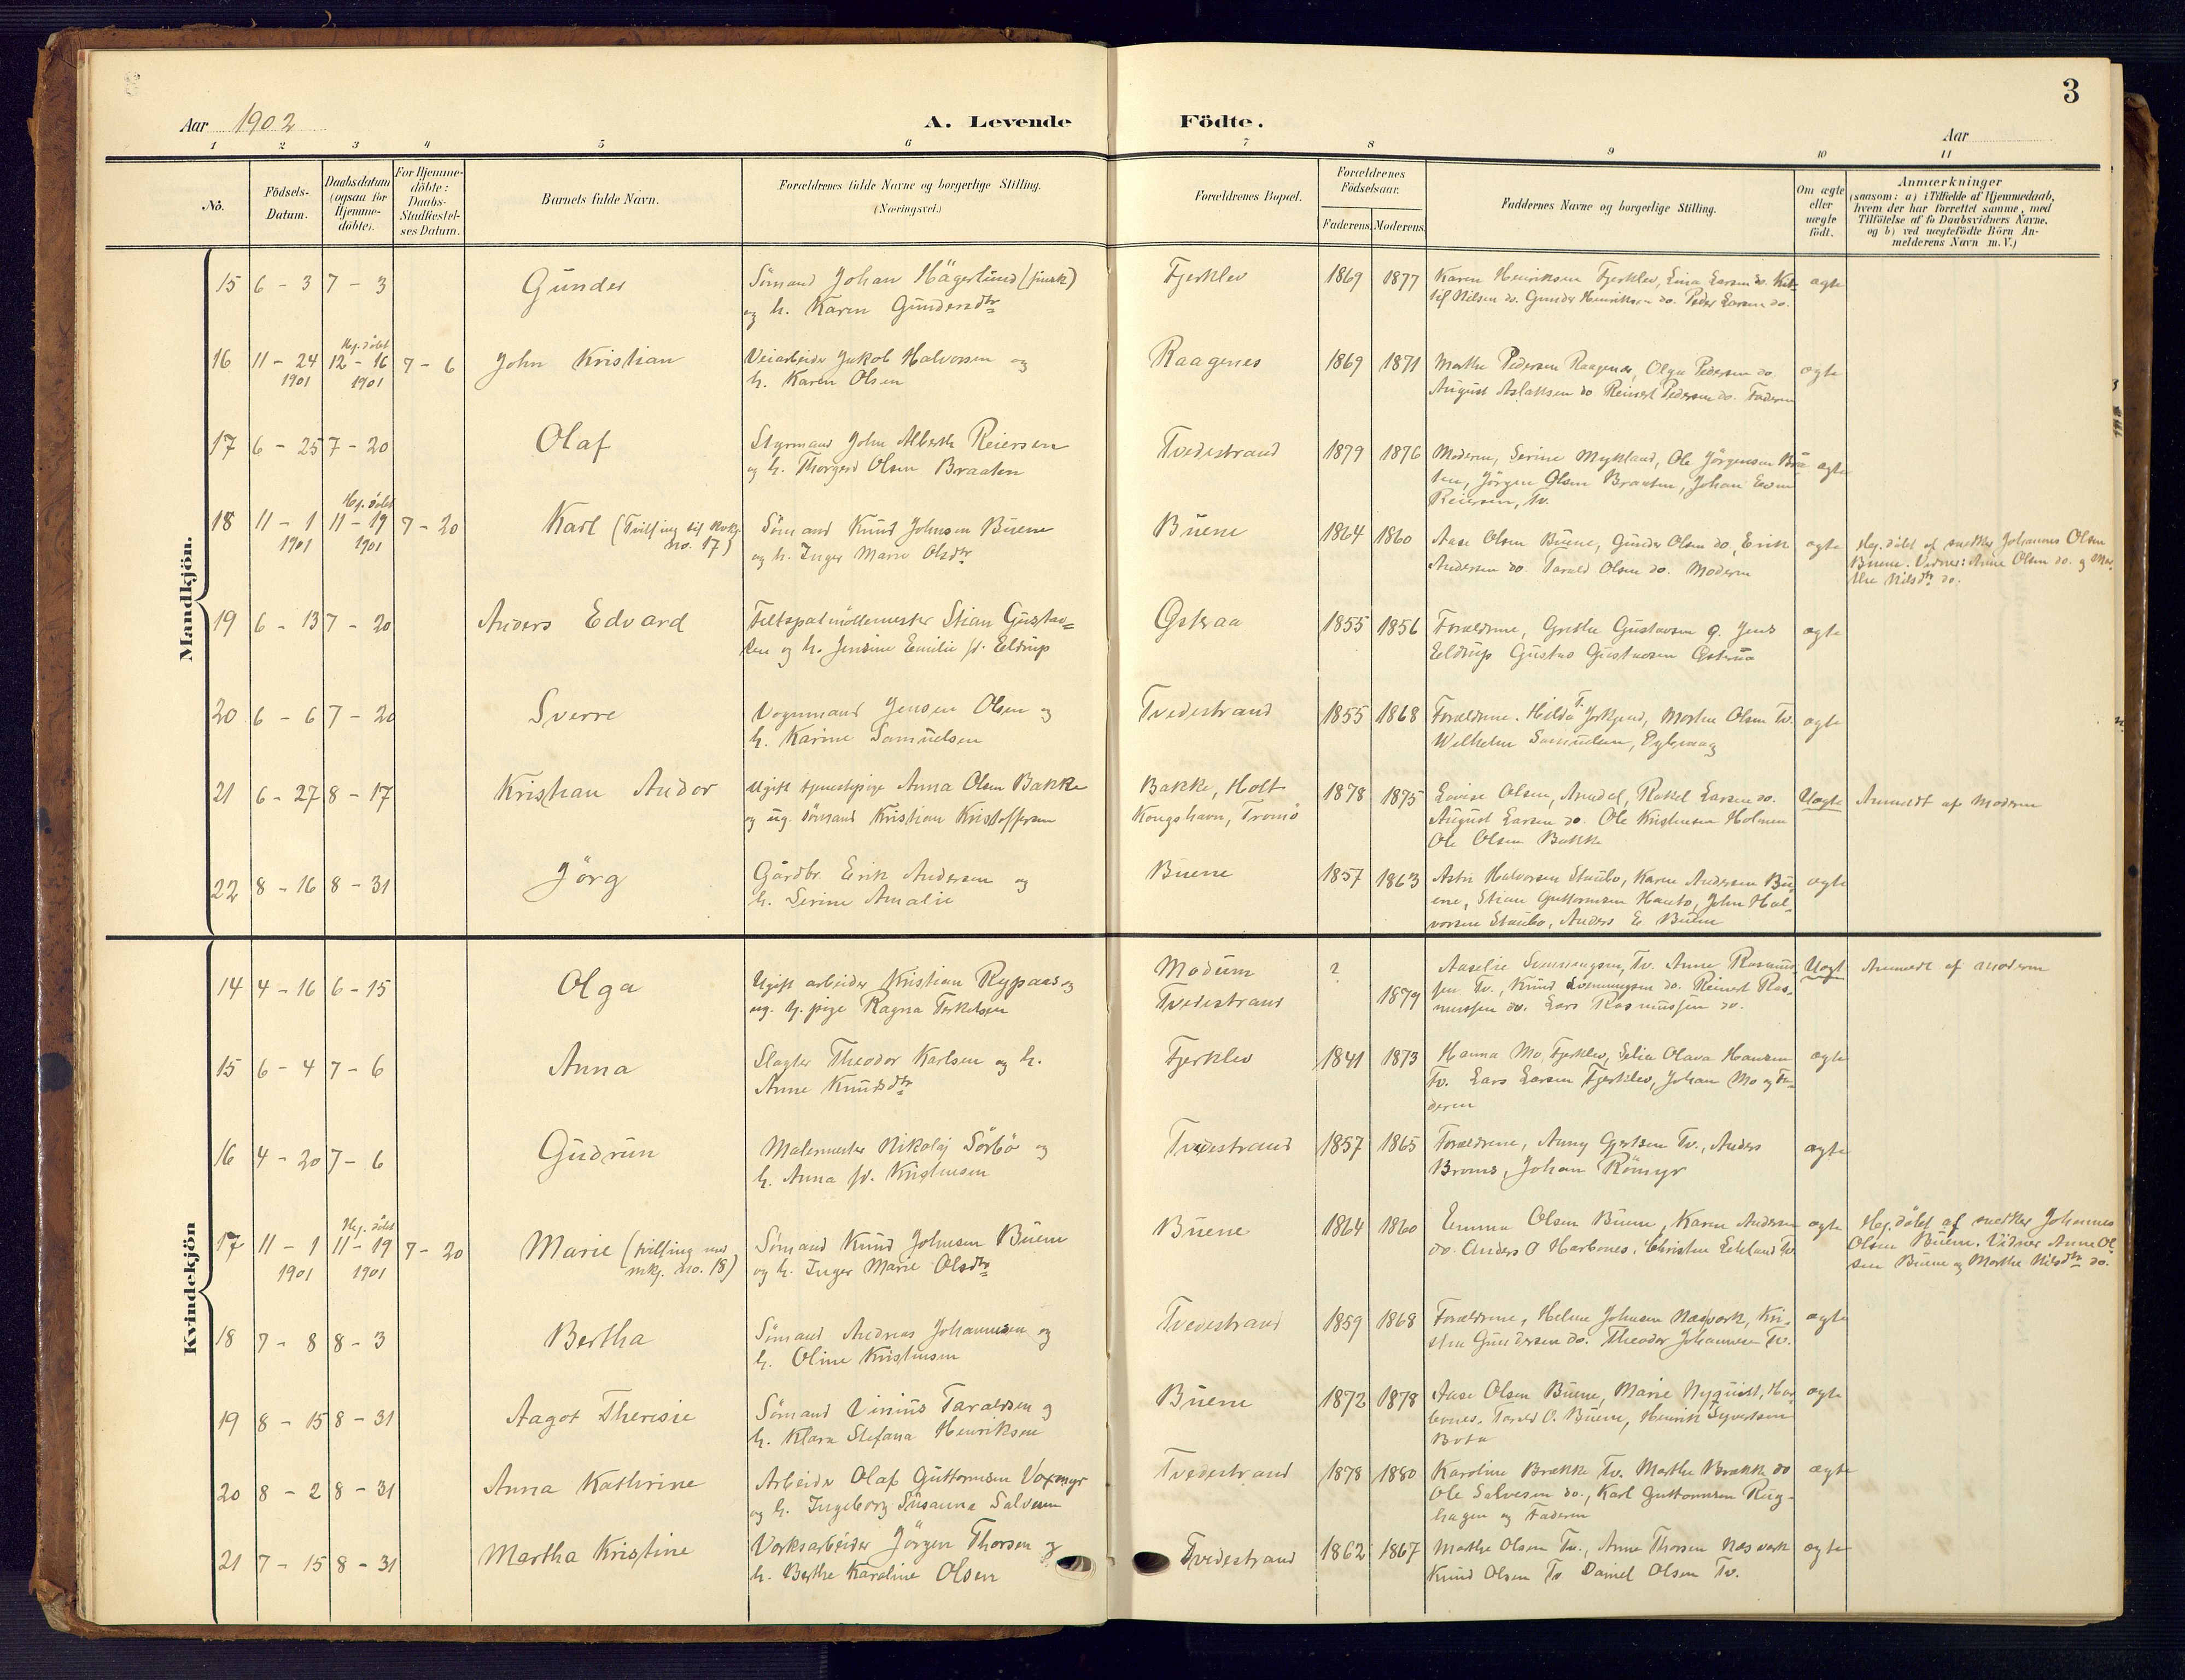 3
Aar 1902
A. Levende Födte.
Aar
1 2 3 4 5 6 7 8 9 10 11
No.
Födsels-Datum.
Daabsdatum (ogsaa for Hjemmedöbte).
For Hjemmedöbte: Daabs-Stadfæstelses Datum.
Barnets fulde Navn.
Forældrenes fulde Navne og borgerlige Stilling. (Næringsvei.)
Forældrenes Bopæl.
Forældrenes Födselsaar. Faderens. Moderens.
Faddernes Navne og borgerlige Stilling.
Om ægte eller uægte født.
Anmærkninger
(saasom: a) i Tilfælde af Hjemmedaab, hvem der har forrettet samme, med Tilföielse af to Daabsvidners Navne, og b) ved uægtefödte Börn Anmelderens Navn m. V.)
Mandkjön.
15 6 - 3 7 - 3 Gunder Sömand Johan Hägerlund (finsk) Fjerklev 1869 1877 Karen Henriksen Fjerklev, Lina Larsen do. ægte
og h. Karen Gundersdtr Nilsen do. Gunder Henriksen do. Peder Larsen do.
16 11 - 24 1901 Hj. döbt 12 - 16 1901 7 - 6 John Kristian Veiarbeider Jakob Halvorsen og Raagenes 1869 1871 Marthe Pedersen Raagenes, Olga Pedersen do. ægte
h. Karen Olsen August Aslaksen do Reinert Pedersen do. Faderen
17 6 - 25 7 - 20 Olaf Styrmand John Alberth Reiersen Tvedestrand 1879 1876 Moderen, Serine Mykland, Ole Jörgensen Braa- ægte
og h. Thorgerd Olsen Braaten ten, Jörgen Olsen Braaten, Johan
Reiersen, Tv.
18 11 - 1 1901 Hj. döbt 11 - 19 1901 7 - 20 Karl (Tvilling til kvkj. no. 17) Sömand Knud Johnsen Buene Buene 1864 1860 Aase Olsen Buene, Gunder Olsen do, Erik ægte Hj. döbt af snekker Johannes Olsen
og h. Inger Marie Olsdtr Andersen do. Tarald Olsen do. Moderen Buene. Vidner: Anne Olsen do. og Mar-
the Nilsdtr do.
19 6 - 13 7 - 20 Anders Edvard Feltspatmöllemester Stian Gustav- Østeraa 1855 1856 Forældrene, Grethe Gustavsen Ø. Jens ægte
sen og h. Jensine Emilie f. Eeldrup Eeldrup Gustav Gustavsen Østeraa
20 6 - 6 7 - 20 Sverre Vognmand Jensen Olsen og Tvedestrand 1855 1868 Forældrene. Hilda Morten Olsen Tv. ægte
h. Karine Samuelsen Wilhelm Samuelsen, Dybvaag
21 6 - 27 8 - 17 Kristian Andor Ugift tjenestepige Anna Olsen Bakke Bakke, Holt 1878 1875 Lovise Olsen, Arendal, Rakel Larsen do. Uægte Anmeldt af Moderen
og ug. sömand Kristian Kristoffersen Kongshavn, Tromö August Larsen do. Ole Kristensen Holmen
Ole Olsen Bakke
22 8 - 16 8 - 31 Jörg Gårdbr. Erik Andersen og Buene 1857 1863 Astri Halvorsen Staubo, Karen Andersen Bu- ægte
h. Serine Amalie ene, Stian Guttormsen Hauto, John Hal-
vorsen Staubo, Anders E. Buene
Kvindekjön
14 4 - 16 6 - 15 Olga Ugift arbeider Kristian Rypaas og Modum ? Aaselie Svenningsen, Tv. Anne Rasmus- Uægt Anmeldt af Moderen
ug. tj. pige Ragna Terkelsen Tvedestrand 1879 sen Tv., Knud Svenningsen do. Reinert Ras-
mussen do. Lars Rasmussen do.
15 6 - 4 7 - 6 Anna Slagter Theodor Karlsen og h. Fjerklev 1841 1873 Hanna Mo, Fjerklev, Olava Hansen ægte
Anne Knudsdtr Tv. Lars Larsen Fjerklev, Johan Mo og Fa-
deren
16 4 - 20 7 - 6 Gudrun Malermester Nikolaj Sörbö og Tvedestrand 1857 1865 Forældrene, Anny Gjertsen Tv., Anders ægte
h. Anna f. Kristensen Broms, Johan Römyr
17 11 - 1 1901 Hj. döbt 11 - 19 1901 7 - 20 Marie (tvilling med mkj. no. 18) Sömand Knud Johnsen Buene Buene 1864 1860 Emma Olsen Buene, Karen Andersen ægte Hj. döbt af snekker Johannes
og h. Inger Marie Olsdtr do. Anders O Christen Tv. Olsen Buene. Vidner Anne Ol-
sen Buene og Marthe Nilsdtr do.
18 7 - 8 8 - 3 Bertha Sömand Andreas Johannesen og Tvedestrand 1859 1868 Forældrene, Helene Johnsen Næsverk, Kri- ægte
h. Oline Kristensen sten Gundersen do. Theodor Johannesen Tv.
19 8 - 15 8 - 31 Aagot Theresie Sömand Vinius Taraldsen og Buene 1872 1878 Aase Olsen Buene, Marie Nyquist, ægte
h. Klara Stefana Henriksen Tarald O. Buene, Henrik Syvertsen
20 8 - 2 8 - 31 Anna Kathrine Arbeider Olaf Guttormsen Voxmyr Tvedestrand 1878 1880 Karoline Brække Tv. Marthe Brække do ægte
og h. Ingeborg Susanna Salvesen Ole Salvesen do., Karl Guttormsen Rug-
hagen og Faderen
21 7 - 15 8 - 31 Martha Kristine Verksarbeider Jörgen Thorsen og Tvedestrand 1862 1867 Marthe Olsen Tv., Anne Thorsen Næsverk ægte
h. Berthe Karoline Olsen Knud Olsen Tv. Daniel Olsen Tv.